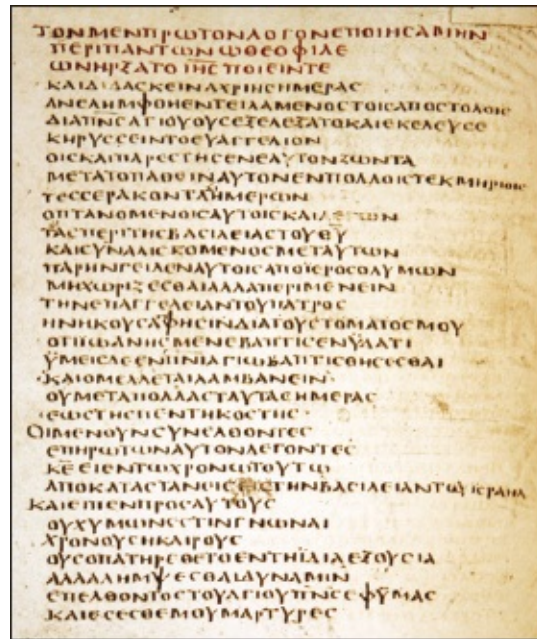 ΤΟΝΜΕΝΠΡΩΤΟΝΛΟΓΟΝΕΠΟΙΗϹΑΜΗΝ
ΠΕΡΙΠΑΝΤΩΝΩΘΕΟΦΙΛΕ
ΩΝΗΡΞΑΤΟΙΗϹΠΟΙΕΙΝΤΕ
ΚΑΙΔΙΔΑϹΚΕΙΝΑΧΡΙΗϹΗΜΕΡΑϹ
ΑΝΕΛΗΜΦΘΗΕΝΤΕΙΛΑΜΕΝΟϹΤΟΙϹΑΠΟϹΤΟΛΟΙϹ
ΔΙΑΠΝϹΑΓΙΟΥΟΥϹΕΞΕΛΕΞΑΤΟΚΑΙΕΚΕΛΕΥϹΕ
ΚΗΡΥϹϹΕΙΝΤΟΕΥΑΓΓΕΛΙΟΝ
ΟΙϹΚΑΙΠΑΡΕϹΤΗϹΕΝΕΑΥΤΟΝΖΩΝΤΑ
ΜΕΤΑΤΟΠΑΘΕΙΝΑΥΤΟΝΕΝΠΟΛΛΟΙϹΤΕΚΜΗΡΙΟΙϹ
ΤΕϹϹΕΡΑΚΟΝΤΑΗΜΕΡΩΝ
ΟΠΤΑΝΟΜΕΝΟΙϹΑΥΤΟΙϹΚΑΙΛΕΓΩΝ
ΤΑϹΠΕΡΙΤΗϹΒΑϹΙΛΕΙΑϹΤΟΥΘΥ
ΚΑΙϹΥΝΑΛΙϹΚΟΜΕΝΟϹΜΕΤΑΥΤΩΝ
ΠΑΡΗΝΓΕΙΛΕΝΑΥΤΟΙϹΑΠΟΪΕΡΟϹΟΛΥΜΩΝ
ΜΗΧΩΡΙΖΕϹΘΑΙΑΛΛΑΠΕΡΙΜΕΝΕΙΝ
ΤΗΝΕΠΑΓΓΕΛΕΙΑΝΤΟΥΠΑΤΡΟϹ
ΗΝΗΚΟΥϹΑΦΗϹΙΝΔΙΑΤΟΥϹΤΟΜΑΤΟϹΜΟΥ
ΟΤΙΙΩΑΝΗϹΜΕΝΕΒΑΠΤΙϹΕΝΫΔΑΤΙ
ΫΜΕΙϹΔΕΕΝΠΝΙΑΓΙΩΒΑΠΤΙϹΘΗϹΕϹΘΑΙ
·ΚΑΙΟΜΕΛΛΕΤΑΙΛΑΜΒΑΝΕΙΝ·
ΟΥΜΕΤΑΠΟΛΛΑϹΤΑΥΤΑϹΗΜΕΡΑϹ
·ΕΩϹΤΗϹΠΕΝΤΗΚΟϹΤΗϹ·
ΟΙΜΕΝΟΥΝϹΥΝΕΛΘΟΝΤΕϹ
ΕΠΗΡΩΤΩΝΑΥΤΟΝΛΕΓΟΝΤΕϹ
ΚΕΕΙΕΝΤΩΧΡΟΝΩΤΟΥΤΩ
ΑΠΟΚΑΤΑϹΤΑΝΕΙϹΕΙϹΤΗΝΒΑϹΙΛΕΙΑΝΤΩΙϹΡΑΗΛ
ΚΑΙΕΙΠΕΝΠΡΟϹΑΥΤΟΥϹ
ΟΥΧΥΜΩΝΕϹΤΙΝΓΝΩΝΑΙ
ΧΡΟΝΟΥϹΗΚΑΙΡΟΥϹ
ΟΥϹΟΠΑΤΗΡΕΘΕΤΟΕΝΤΗΪΔΙΑΕΞΟΥϹΙΑ
ΑΛΛΑΛΗΜΨΕϹΘΑΙΔΥΝΑΜΙΝ
ΕΠΕΛΘΟΝΤΟϹΤΟΥΑΓΙΟΥΠΝϹΕΦΫΜΑϹ
ΚΑΙΕϹΕϹΘΕΜΟΥΜΑΡΤΥΡΕϹ